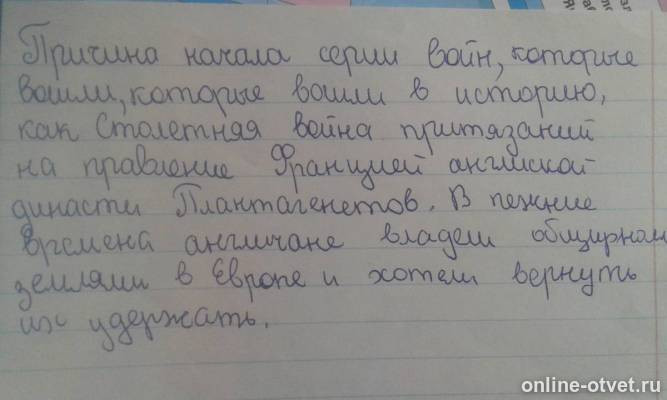 Причина начала серии войн, которые
вошли, которые вошли в историю,
как Столетняя война притязаний
на правление Францией англиской
династи Плантагенетов. В пежние
времена англичане владели общирном
землями в Европе и хотели вернуть
их удержать.
online-otvet.ru